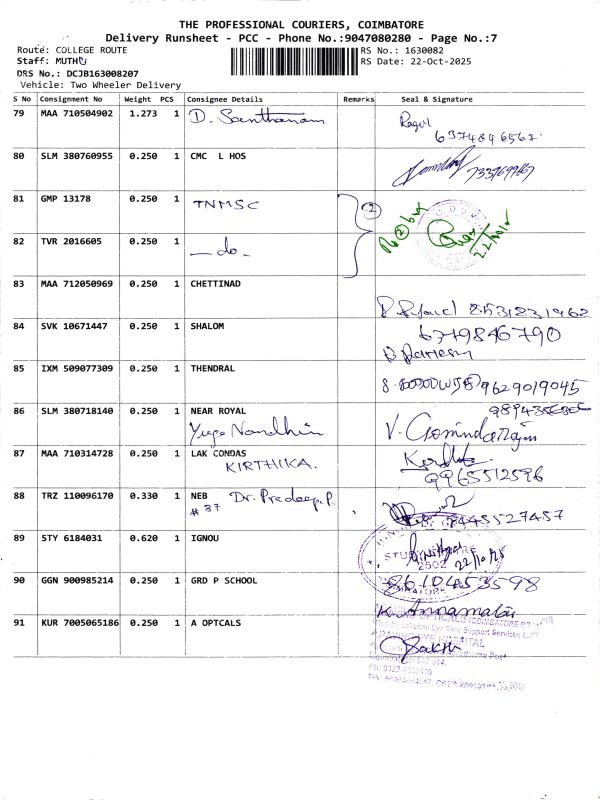 THE PROFESSIONAL COURIERS, COIMBATORE
Delivery Runsheet - PCC - Phone No.:9047080280 - Page No.:7
Route: COLLEGE ROUTE RS No.: 1630082
Staff: MUTHU RS Date: 22-Oct-2025
DRS No.: DCJB163008207
Vehicle: Two Wheeler Delivery
S No Consignment No Weight PCS Consignee Details Remarks Seal & Signature
79 MAA 710504902 1.273 1 D. Santhanam
6374846562
80 SLM 380760955 0.250 1 CMC L HOS
81 GMP 13178 0.250 1 TNMSC 2
82 TVR 2016605 0.250 1 —do-
83 MAA 712050969 0.250 1 CHETTINAD
8531831962
84 SVK 10671447 0.250 1 SHALOM 6749846790
85 IXM 509077309 0.250 1 THENDRAL
9629019045
86 SLM 380718140 0.250 1 NEAR ROYAL
Yuga Nandhini V. Govindarajan
87 MAA 710314728 0.250 1 LAK CONDAS
KIRTHIKA. 9965512596
88 TRZ 110096170 0.330 1 NEB Dr. Pradeep.P
# 87 8445527457
89 STY 6184031 0.620 1 IGNOU
22/10/25
2502
90 GGN 900985214 0.250 1 GRD P SCHOOL 8610453598
91 KUR 7005065186 0.250 1 A OPTCALS K. Annamalai
Sakthi